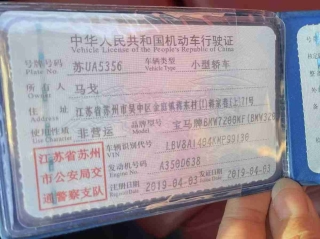 中华人民共和国机动车行驶证
Vehicle License of the People's Republic of China
号牌号码 苏UA5356 车辆类型 小型轿车
Plate No. Vehicle Type
所有人 马戈
Owner
住址 江苏省苏州市吴中区金庭镇
Address
使用性质 非营运 品牌型号 宝马牌
Use Character
江苏省苏州
市公安局交
通警察支队
车辆识别代号
VIN
发动机号码 A3580638
Engine No.
注册日期 2019-04-03 发证日期 2019-04-03
Register Date Issue Date